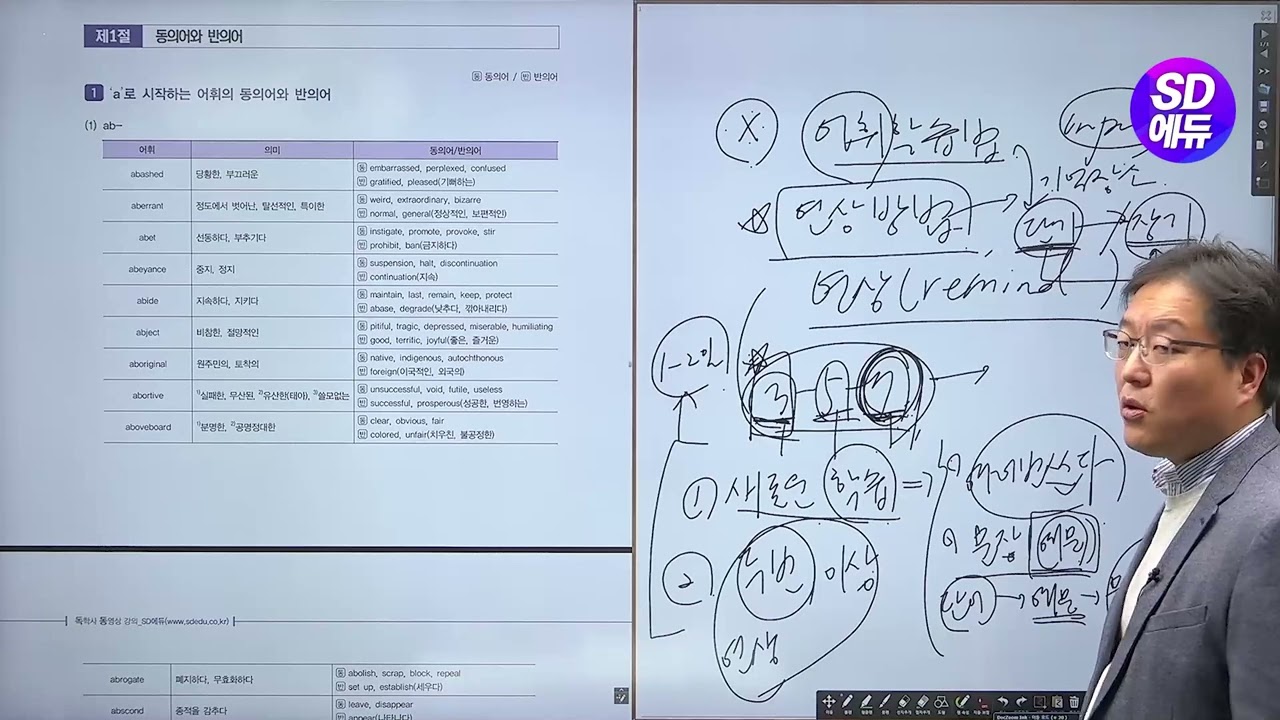 제1절 동의어와 반의어
동 동의어 / 반 반의어
1 'a'로 시작하는 어휘의 동의어와 반의어
(1) ab-
어휘 의미 동의어/반의어
abashed 당황한, 부끄러운 동 embarrassed, perplexed, confused
반 gratified, pleased(기뻐하는)
aberrant 정도에서 벗어난, 탈선적인, 특이한 동 weird, extraordinary, bizarre
반 normal, general(정상적인, 보편적인)
abet 선동하다, 부추기다 동 instigate, promote, provoke, stir
반 prohibit, ban(금지하다)
abeyance 중지, 정지 동 suspension, halt, discontinuation
반 continuation(지속)
abide 지속하다, 지키다 동 maintain, last, remain, keep, protect
반 abase, degrade(낮추다, 깎아내리다)
abject 비참한, 절망적인 동 pitiful, tragic, depressed, miserable, humiliating
반 good, terrific, joyful(좋은, 즐거운)
aboriginal 원주민의, 토착의 동 native, indigenous, autochthonous
반 foreign(이국적인, 외국의)
abortive 1)실패한, 무산된, 2)유산한(태아), 3)쓸모없는 동 unsuccessful, void, futile, useless
반 successful, prosperous(성공한, 번영하는)
aboveboard 1)분명한, 2)공명정대한 동 clear, obvious, fair
반 colored, unfair(치우친, 불공정한)
독학사 동영상 강의_SD에듀(www.sdedu.co.kr)
abrogate 폐지하다, 무효화하다 동 abolish, scrap, block, repeal
반 set up, establish(세우다)
abscond 종적을 감추다 동 leave, disappear
반 appear(나타나다)
SD
에듀
X 어휘학습법
기억장소
연상방법 단기 장기
연상(remind)
1-2일
3 5 7
① 새로운 학습 ⇒
② 두번 이상
연상
문장 예문
단어 → 예문 →